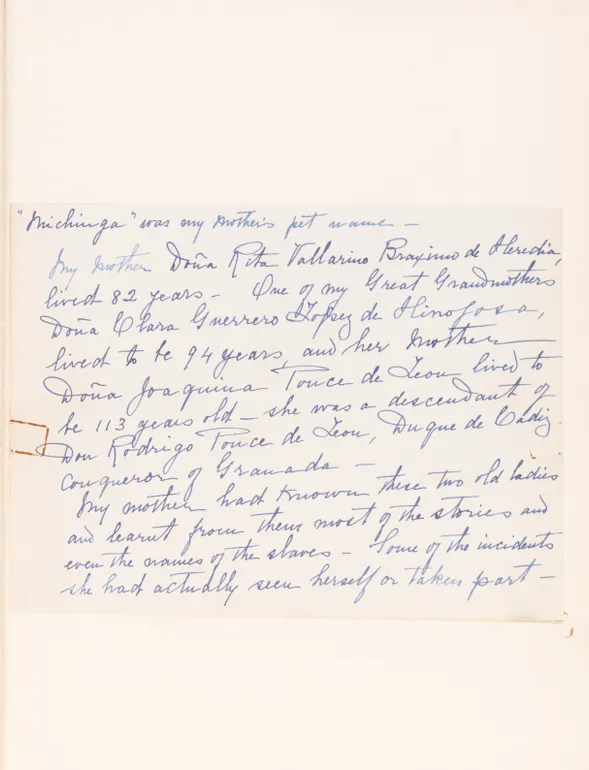 "Michinga" was my mother's pet name –
My mother Doña Rita Vallarino Braximo de Heredia,
lived 82 years – One of my Great Grandmothers
Doña Clara Guerrero Lopez de Hinojosa,
lived to be 94 years, and her Mother
Doña Joaquina Ponce de Leon lived to
be 113 years old – she was a descendant of
Don Rodrigo Ponce de Leon, Duque de Cadiz
conqueror of Granada –
My mother had known these two old ladies
and learnt from them most of the stories and
even the names of the slaves – Some of the incidents
she had actually seen herself or taken part –